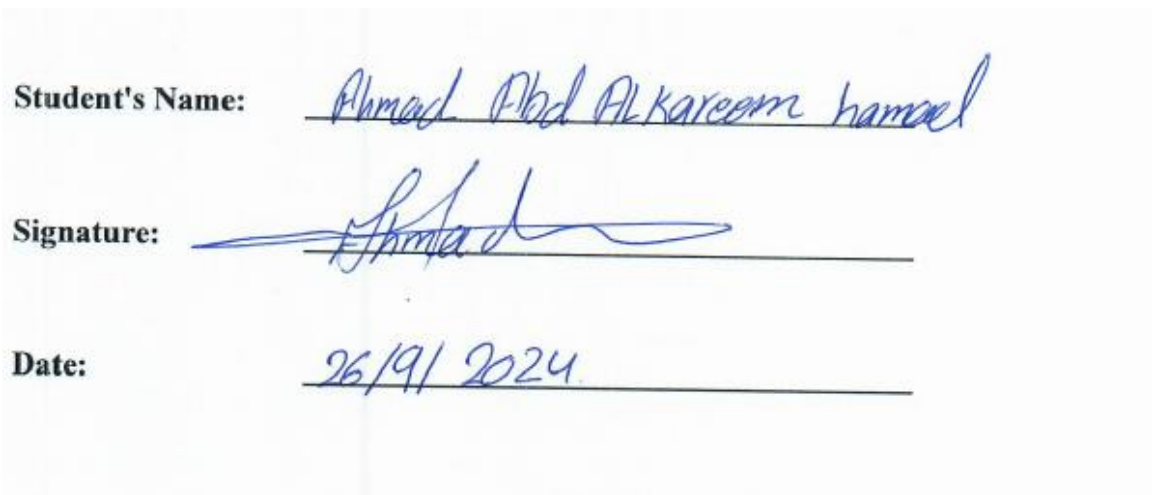 Student's Name: Ahmad Abd ALKareem hamael
Signature: Ahmad
Date: 26/9/2024